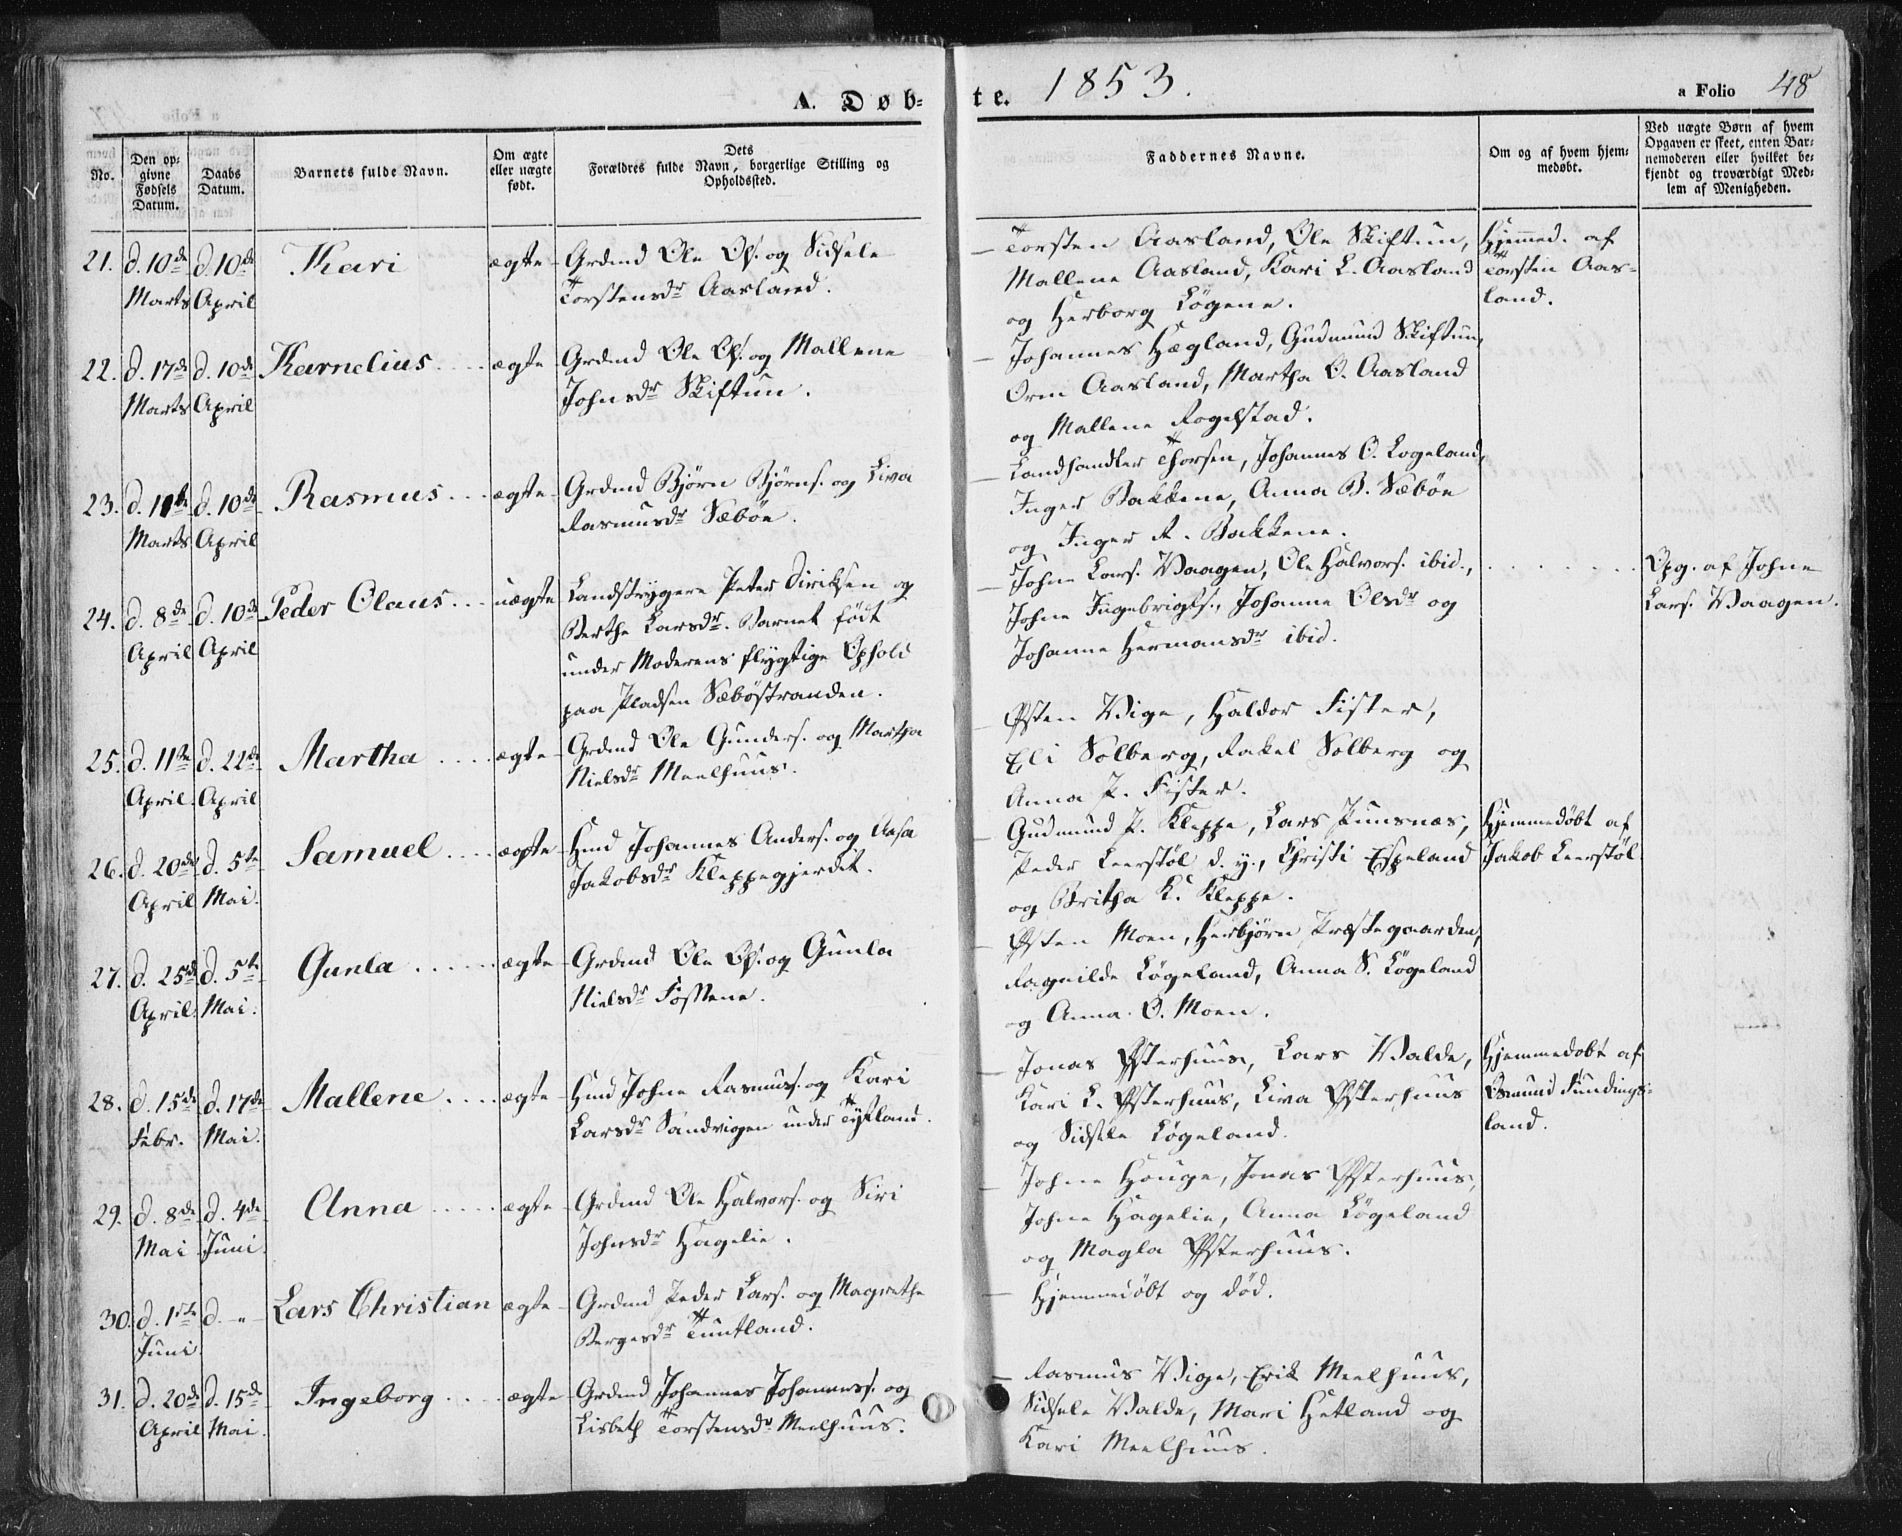 A. Døb-
te. 1853.
a Folio 48
No.
Den op-
givne
Fødsels
Datum.
Daabs
Datum.
Barnets fulde Navn.
Om ægte
eller uægte
født.
Dets
Forældres fulde Navn, borgerlige Stilling og
Opholdssted.
Faddernes Navne.
Om og af hvem hjem-
medøbt.
Ved uægte Børn af hvem
Opgaven er skeet, enten Bar-
nemoderen eller hvilket be-
kjendt og troværdigt Med-
lem af Menigheden.
21. d. 10de Marts d. 10de April Kari ægte Grdmd Ole Ols. og Sidsele
Torstensdr Aasland.
Torsten Aasland, Ole Skiftun,
Mallene Aasland, Kari L. Aasland
og Herborg Løgene.
Hjemmed. af
Torsten Aas-
land.
22. d. 17de Marts d. 10de April Karnelius ægte Grdmd Ole Ols. og Mallene
Johnsdr Skiftun.
Johannes Hægland, Gudmund Skiftun,
Orm Aasland, Martha O. Aasland
og Mallene Rogelstad.
23. d. 11te Marts d. 10de April Rasmus ægte Grdmd Bjørn Bjørns. og Liva
Rasmusdr Sæbøe.
Landhandler Thorsen, Johannes O. Logeland,
Inger Bakkene, Anna B. Sæbøe
og Inger R. Bakkene.
24. d. 8de April d. 10de April Peder Olaus uægte Landstrygere Peter Diriksen og
Berthe Larsdr. Barnet født
under Moderens flygtige Ophold
paa Pladsen Sæbøstranden.
Johne Lars. Vaagen, Ole Halvors. ibid.,
Johne Ingebrigts., Johanne Olsdr og
Johanne Hermansdr ibid.
Opg. af Johne
Lars. Vaagen.
25. d. 11te April d. 22de April Martha ægte Grdmd Ole Gunders. og Martha
Nielsdr Meelhuus.
Østen Vige, Haldor Fister,
Eli Solberg, Rakel Solberg og
Anna P. Fister.
26. d. 20de April d. 5te Mai. Samuel ægte Hmd Johannes Anders. og Aasa
Jakobsdr Kleppegjerdet.
Gudmund P. Kleppe, Lars Puusnæs,
Peder Leerstøl d. y., Christi Espeland
og Britha K. Kleppe.
Hjemmedøbt af
Jakob Leerstøl
27. d. 25de April d. 5te Mai. Gunla ægte Grdmd Ole Ols. og Gunla
Nielsdr Fossene.
Østen Moen, Herbjørn Præstegaarden,
Ragnilde Løgeland, Anna S. Løgeland
og Anna O. Moen.
28. d. 15de Febr. d. 17de Mai. Mallene ægte Hmd Johne Rasmuss. og Kari
Larsdr Sandvigen under Tytland.
Jonas Østerhuus, Lars Valde,
Kari L. Østerhuus, Liva Østerhuus
og Sidsele Løgeland.
Hjemmedøbt af
Osmund Fundings-
land.
29. d. 8de Mai d. 4de Juni. Anna ægte Grdmd Ole Halvors. og Siri
Johnsdr Hagelie.
Johne Houge, Jonas Østerhuus,
Johne Hagelie, Anna Løgeland
og Magla Østerhuus.
30. d. 1ste Juni d. -"- Lars Christian ægte Grdmd Peder Lars. og Magrethe
Bergesdr Tuntland.
Hjemmedøbt og død.
31. d. 20de April d. 15de Mai. Ingeborg ægte Grdmd Johannes Johanness. og
Lisbeth Torstensdr Meelhuus.
Rasmus Vige, Erik Meelhuus,
Sidsele Valde, Mari Hetland og
Kari Meelhuus.